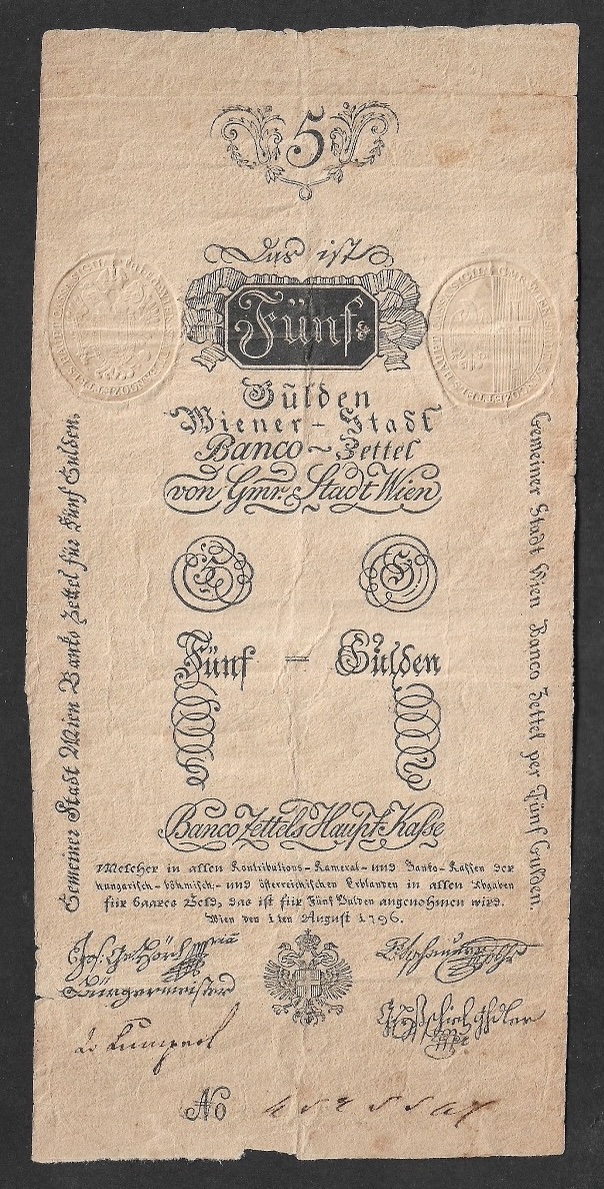 5
Das ist
Fünf
Gulden
Wiener - Stadt
Banco ~ Zettel
von Gmr. Stadt Wien
5 5
Fünf = Gulden
Banco Zettels Haupt Kasse
Welcher in allen Kontributions - Kameral - und Banko - Kassen der
hungarisch - böhmisch - und österreichischen Erblanden in allen Abgaben
für baares Geld, das ist für Fünf Gulden angenohmen wird.
Wien den 1ten August 1796.
Jos. Geo. Hörl
Bürgermeister
No
Gemeiner Stadt Wien Banko Zettel für Fünf Gulden.
Gemeiner Stadt Wien Banco Zettel per Fünf Gulden.